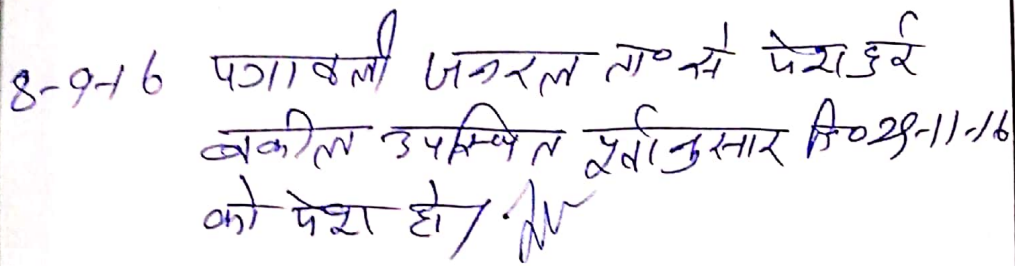 8-9-16 पत्रावली जनरल ता० से पेश हुई
वकील उपस्थित पूर्वानुसार दि० 29-11-16
को पेश हो/